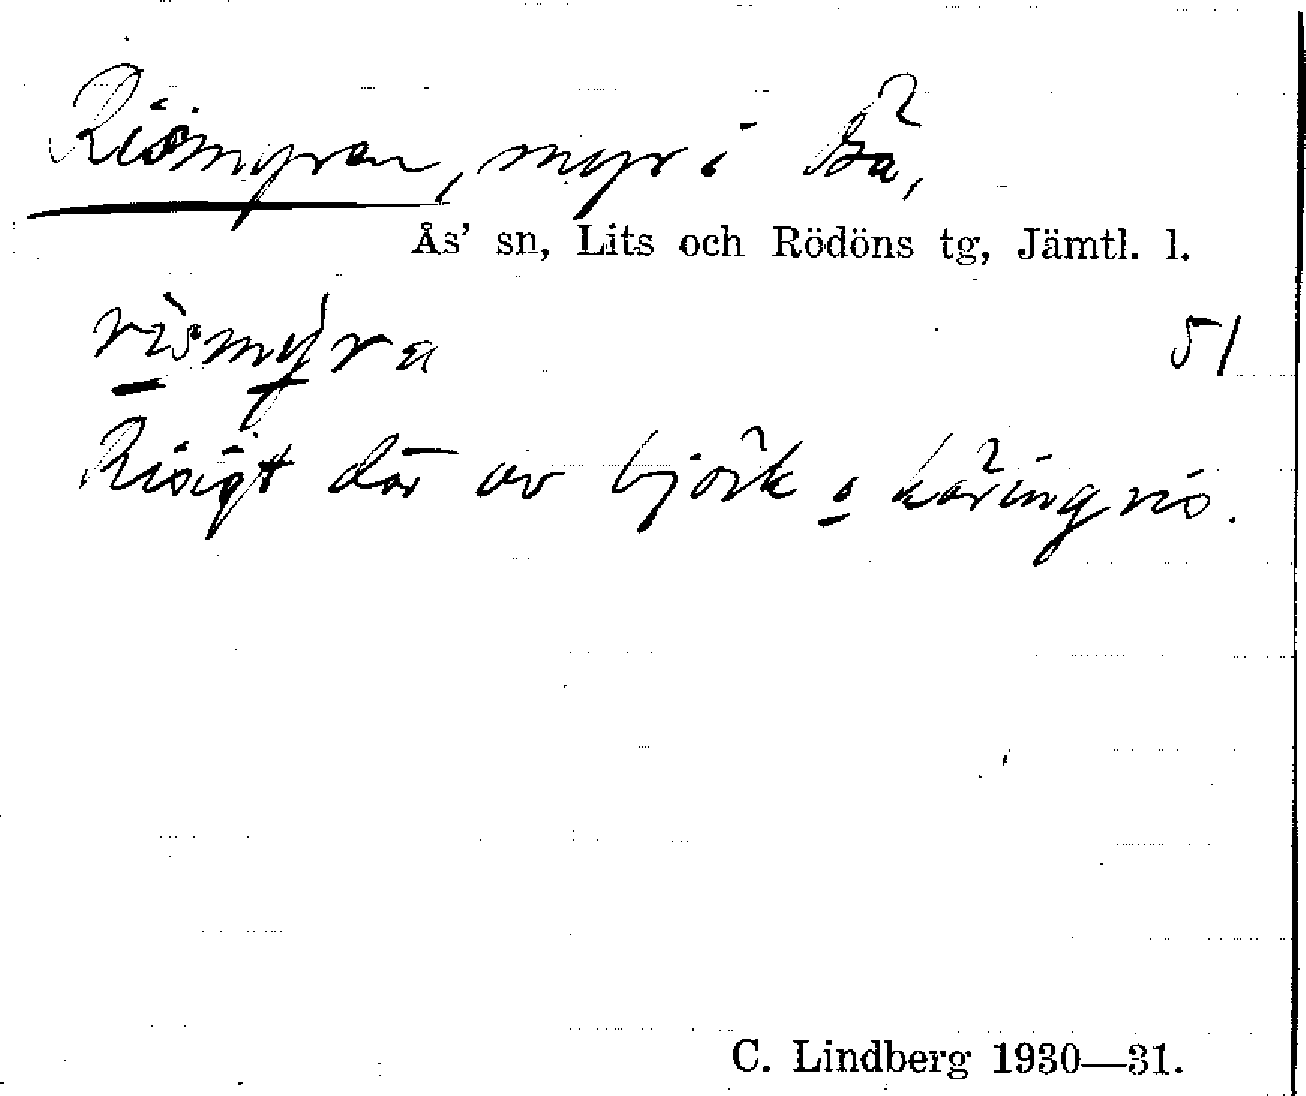 Rismyran, myr i
Ås' sn, Lits och Rödöns tg, Jämtl. l.
rìsmy̍ra 51
Risigt där av björk o käringris.
C. Lindberg 1930—31.